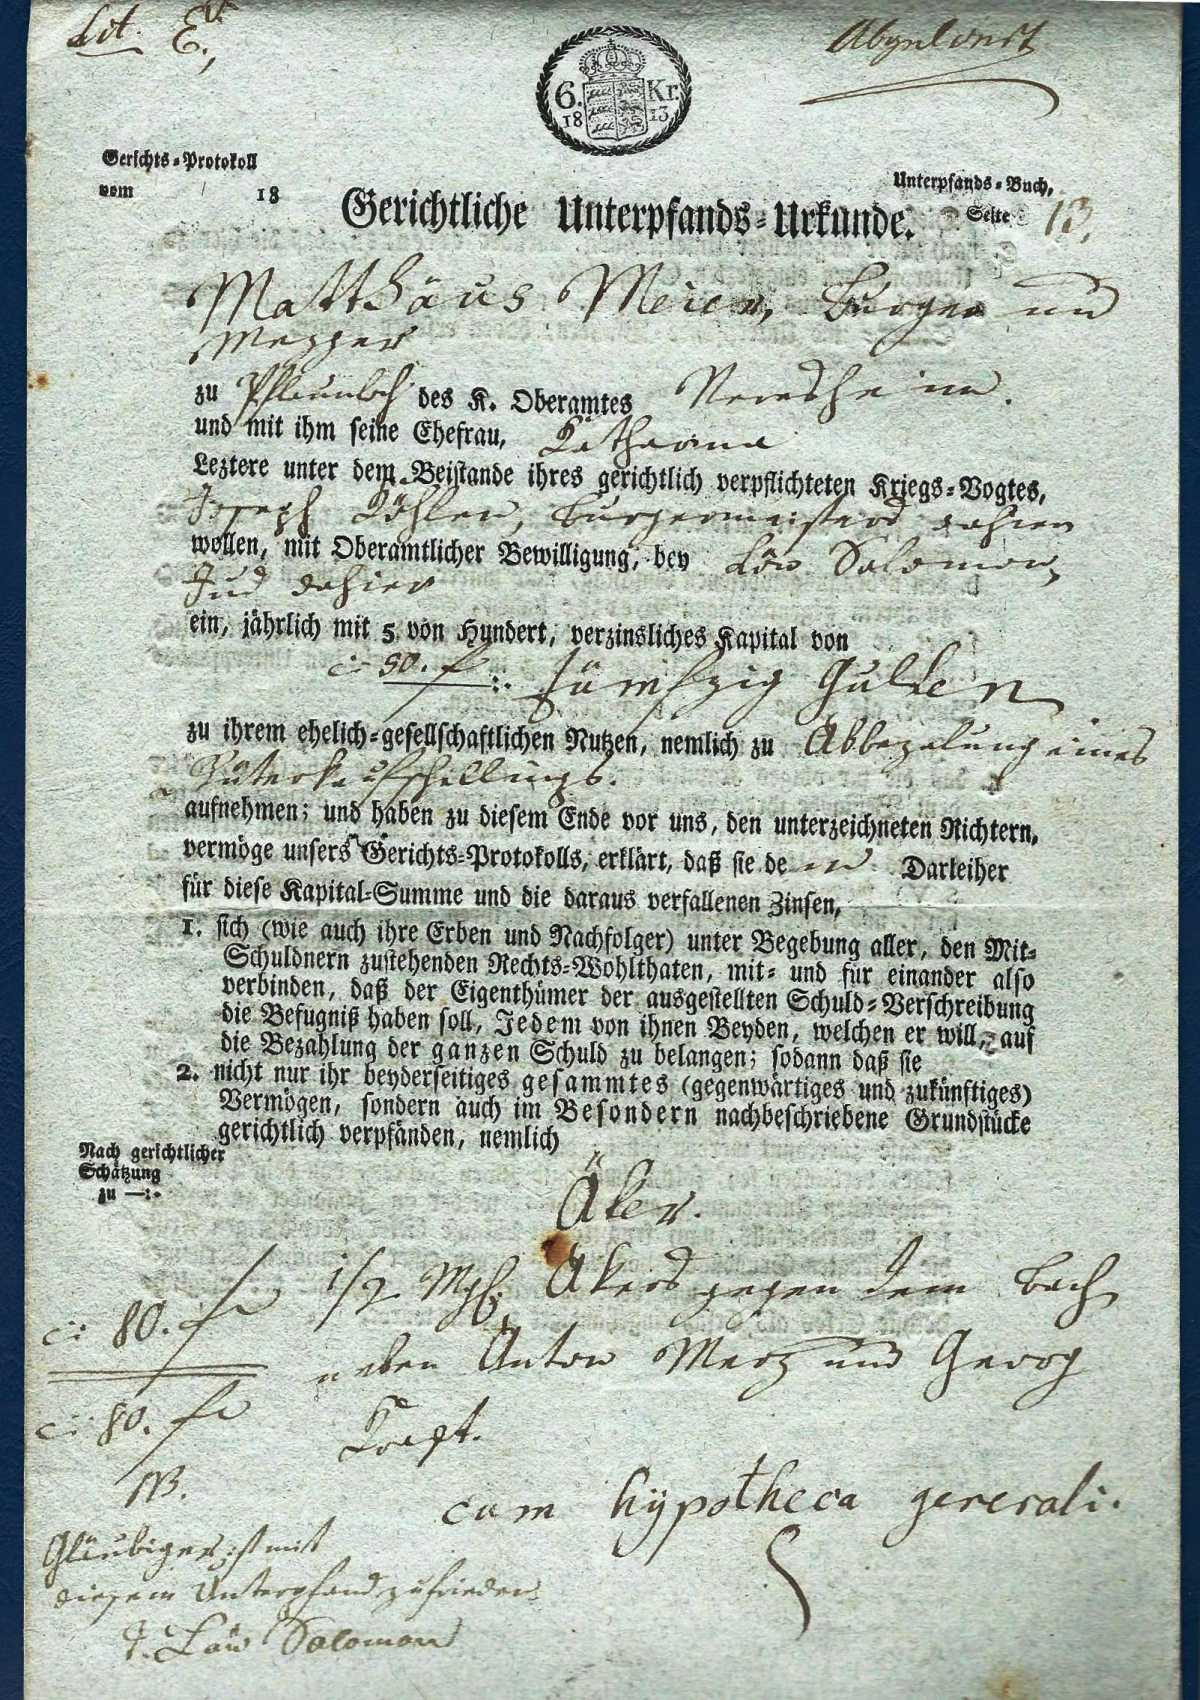 Lit. E.
Abgelöset
6. Kr.
18 13.
Gerichts-Protokoll
vom 18
Unterpfands-Buch,
Seite 13.
Gerichtliche Unterpfands-Urkunde.
Matthäus Meier, Burger und
Mezger
zu Pflaumloch des K. Oberamtes Neresheim.
und mit ihm seine Ehefrau, Katharina
Leztere unter dem Beistande ihres gerichtlich verpflichteten Kriegs-Vogtes,
Joseph Köhler, Burgermeisters dahier
wollen, mit Oberamtlicher Bewilligung, bey Löw Salomon,
Jud dahier
ein, jährlich mit 5 von Hundert, verzinsliches Kapital von
50. f. Fünfzig Gulden
zu ihrem ehelich-gesellschaftlichen Nutzen, nemlich zu Abbezalung eines
Güterkaufschillings.
aufnehmen; und haben zu diesem Ende vor uns, den unterzeichneten Richtern,
vermöge unsers Gerichts-Protokolls, erklärt, daß sie dem Darleiher
für diese Kapital-Summe und die daraus verfallenen Zinsen,
1. sich (wie auch ihre Erben und Nachfolger) unter Begebung aller, den Mit-
Schuldnern zustehenden Rechts-Wohlthaten, mit- und für einander also
verbinden, daß der Eigenthümer der ausgestellten Schuld-Verschreibung
die Befugniß haben soll, Jedem von ihnen Beyden, welchen er will, auf
die Bezahlung der ganzen Schuld zu belangen; sodann daß sie
2. nicht nur ihr beyderseitiges gesammtes (gegenwärtiges und zukünftiges)
Vermögen, sondern auch im Besondern nachbeschriebene Grundstücke
gerichtlich verpfänden, nemlich
Nach gerichtlicher
Schätzung
zu —:-
Äker.
80. f 1/2 Mg. Akers gegen dem Bach
neben Anton Merz und Georg
80. f
NB.
cum hypotheca generali.
Gläubiger ist mit
diesem Unterpfand zufrieden
T. Löw Salomon